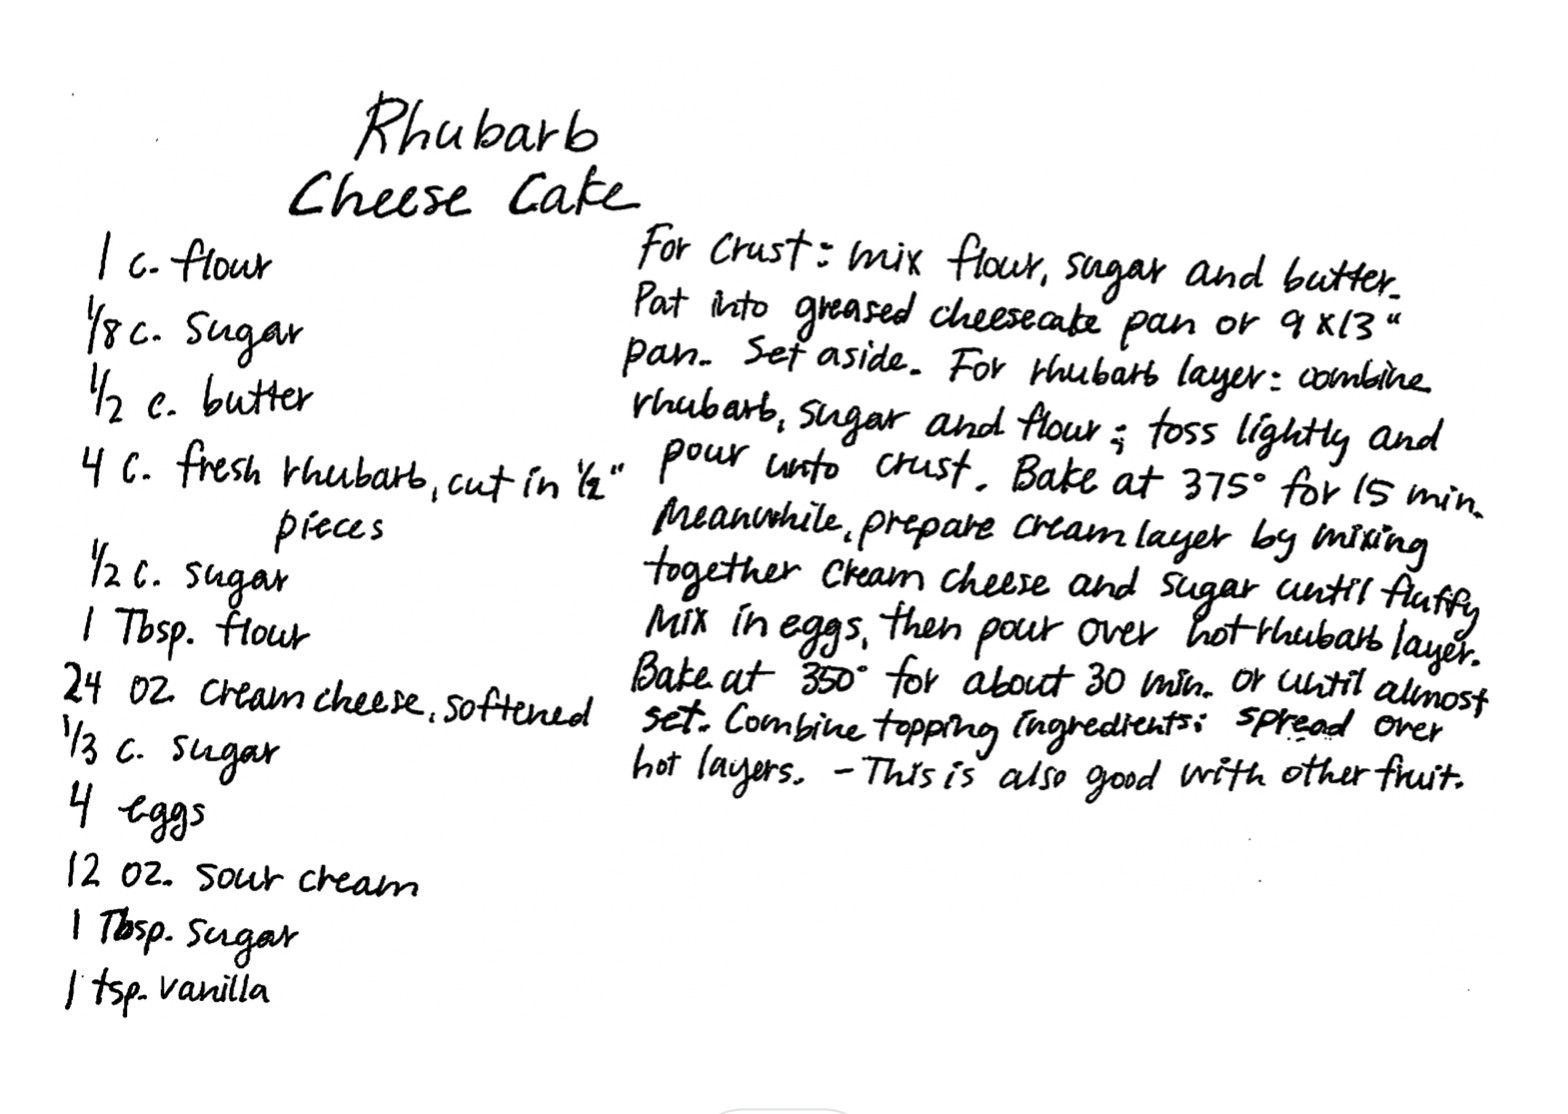 Rhubarb
Cheese Cake
1 c. flour
1/8 c. Sugar
1/2 c. butter
4 c. fresh rhubarb, cut in 1/2"
pieces
1/2 c. sugar
1 Tbsp. flour
24 oz. cream cheese, softened
1/3 c. sugar
4 eggs
12 oz. sour cream
1 Tbsp. sugar
1 tsp. vanilla
For Crust: mix flour, sugar and butter.
Pat into greased cheesecake pan or 9 x 13"
pan. Set aside. For rhubarb layer: combine
rhubarb, sugar and flour; toss lightly and
pour unto crust. Bake at 375° for 15 min.
Meanwhile, prepare cream layer by mixing
together cream cheese and sugar until fluffy
Mix in eggs, then pour over hot rhubarb layer.
Bake at 350° for about 30 min. or until almost
set. Combine topping ingredients: spread over
hot layers. - This is also good with other fruit.